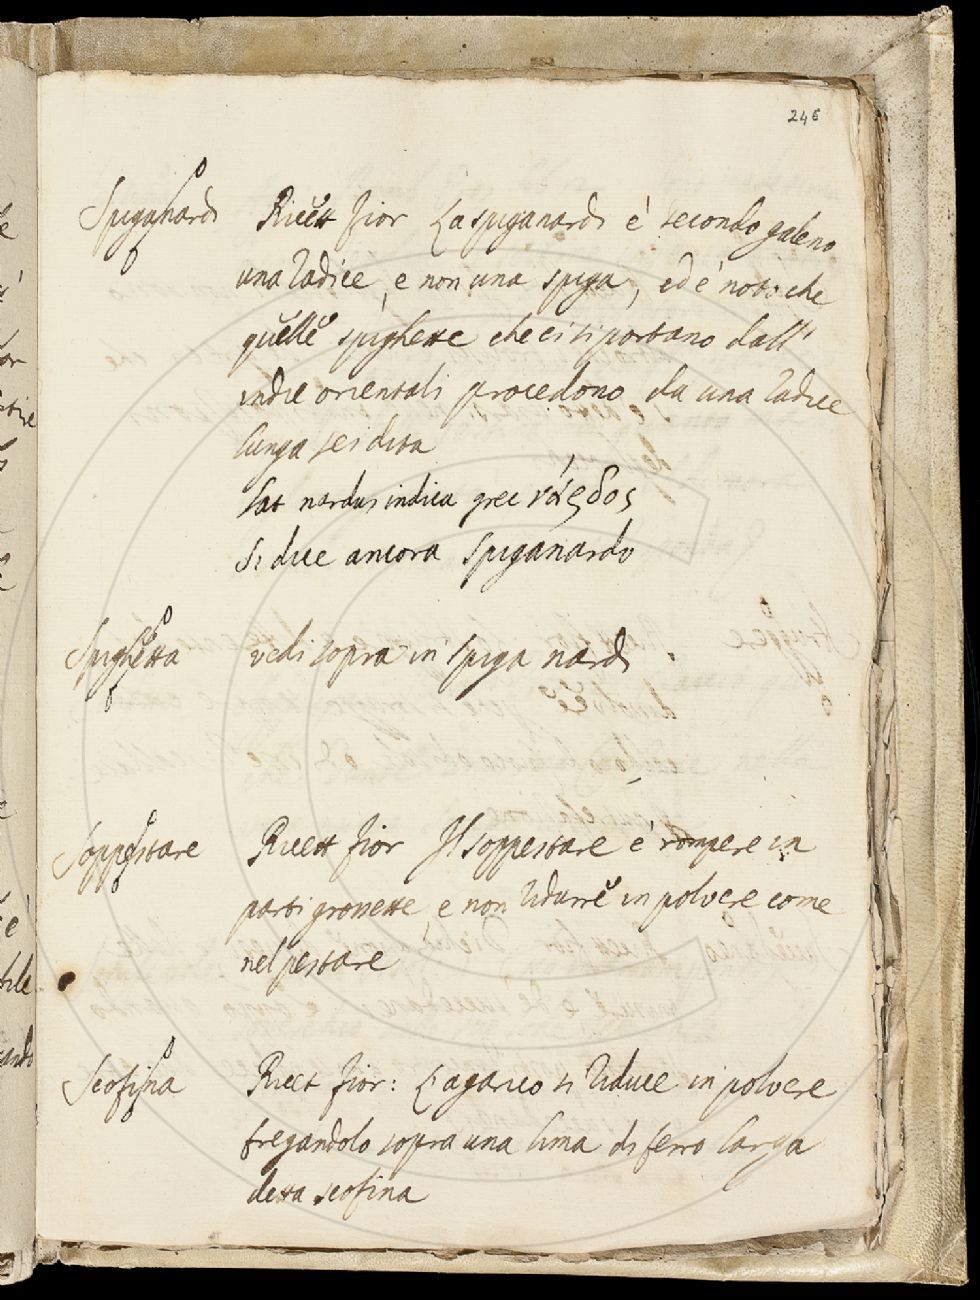 246
Spiganardi Ricett fior La spiganardi è secondo galeno
una radice, e non una spiga, ed è noto che
quelle spighette che ci si portano dall'
indie orientali procedono da una radice
lunga sei dita
Lat nardus indica grec νάρδος
si dice ancora spiganardo
Spighetta vedi sopra in spiga nardi
Soppestare Ricett fior Il soppestare è rompere in
parti grossette, e non ridurre in polvere come
nel pestare
Scofina Ricet fior: L'agarico si riduce in polvere
fregandolo sopra una lima di ferro larga
detta scofina